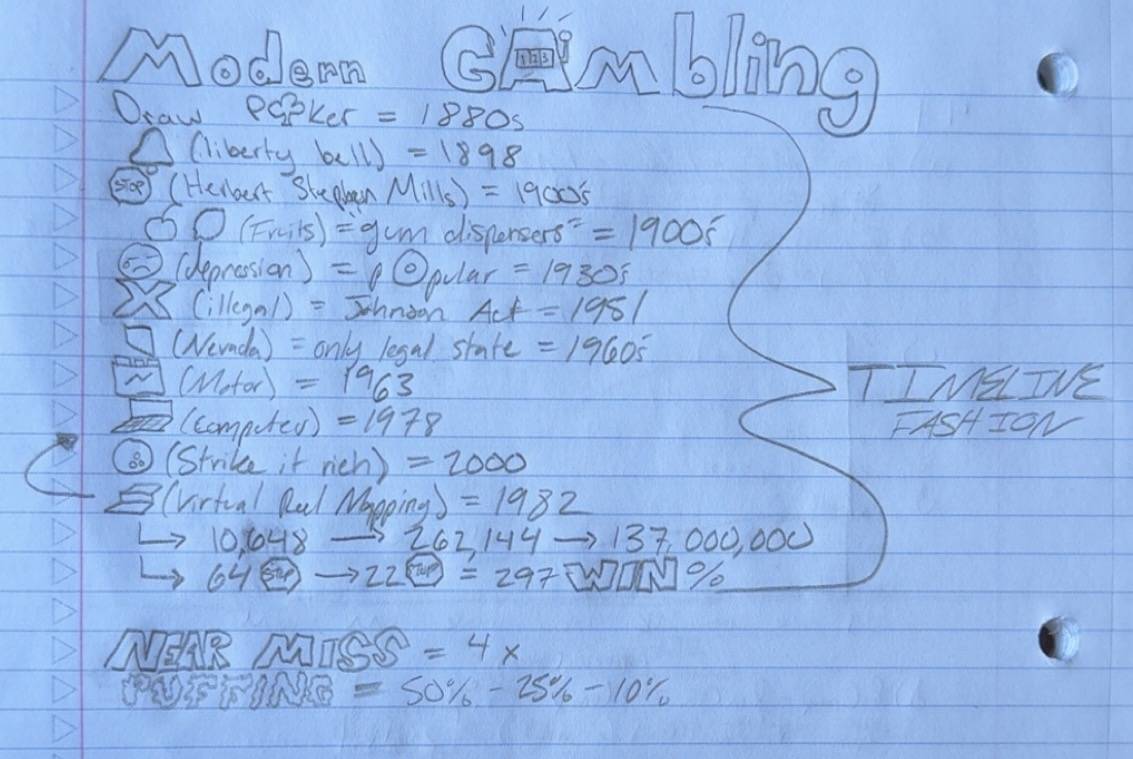 Modern GAmbling
123
Draw Poker = 1880s
(liberty bell) = 1898
STOP (Herbert Stephen Mills) = 1900's
(Fruits) = "gum dispensers" = 1900s
(depression) = pOpular = 1930's
X (illegal) = Johnson Act = 1951
(Nevada) = only legal state = 1960's
(Motor) = 1963
(computer) = 1978
TIMELINE
FASHION
(Strike it rich) = 2000
(Virtual Reel Mapping) = 1982
↳ 10,648 → 262,144 → 137,000,000
↳ 64 STOP → 22 STOP = 297 WIN %
NEAR MISS = 4 x
PUFFING = 50% - 25% - 10%